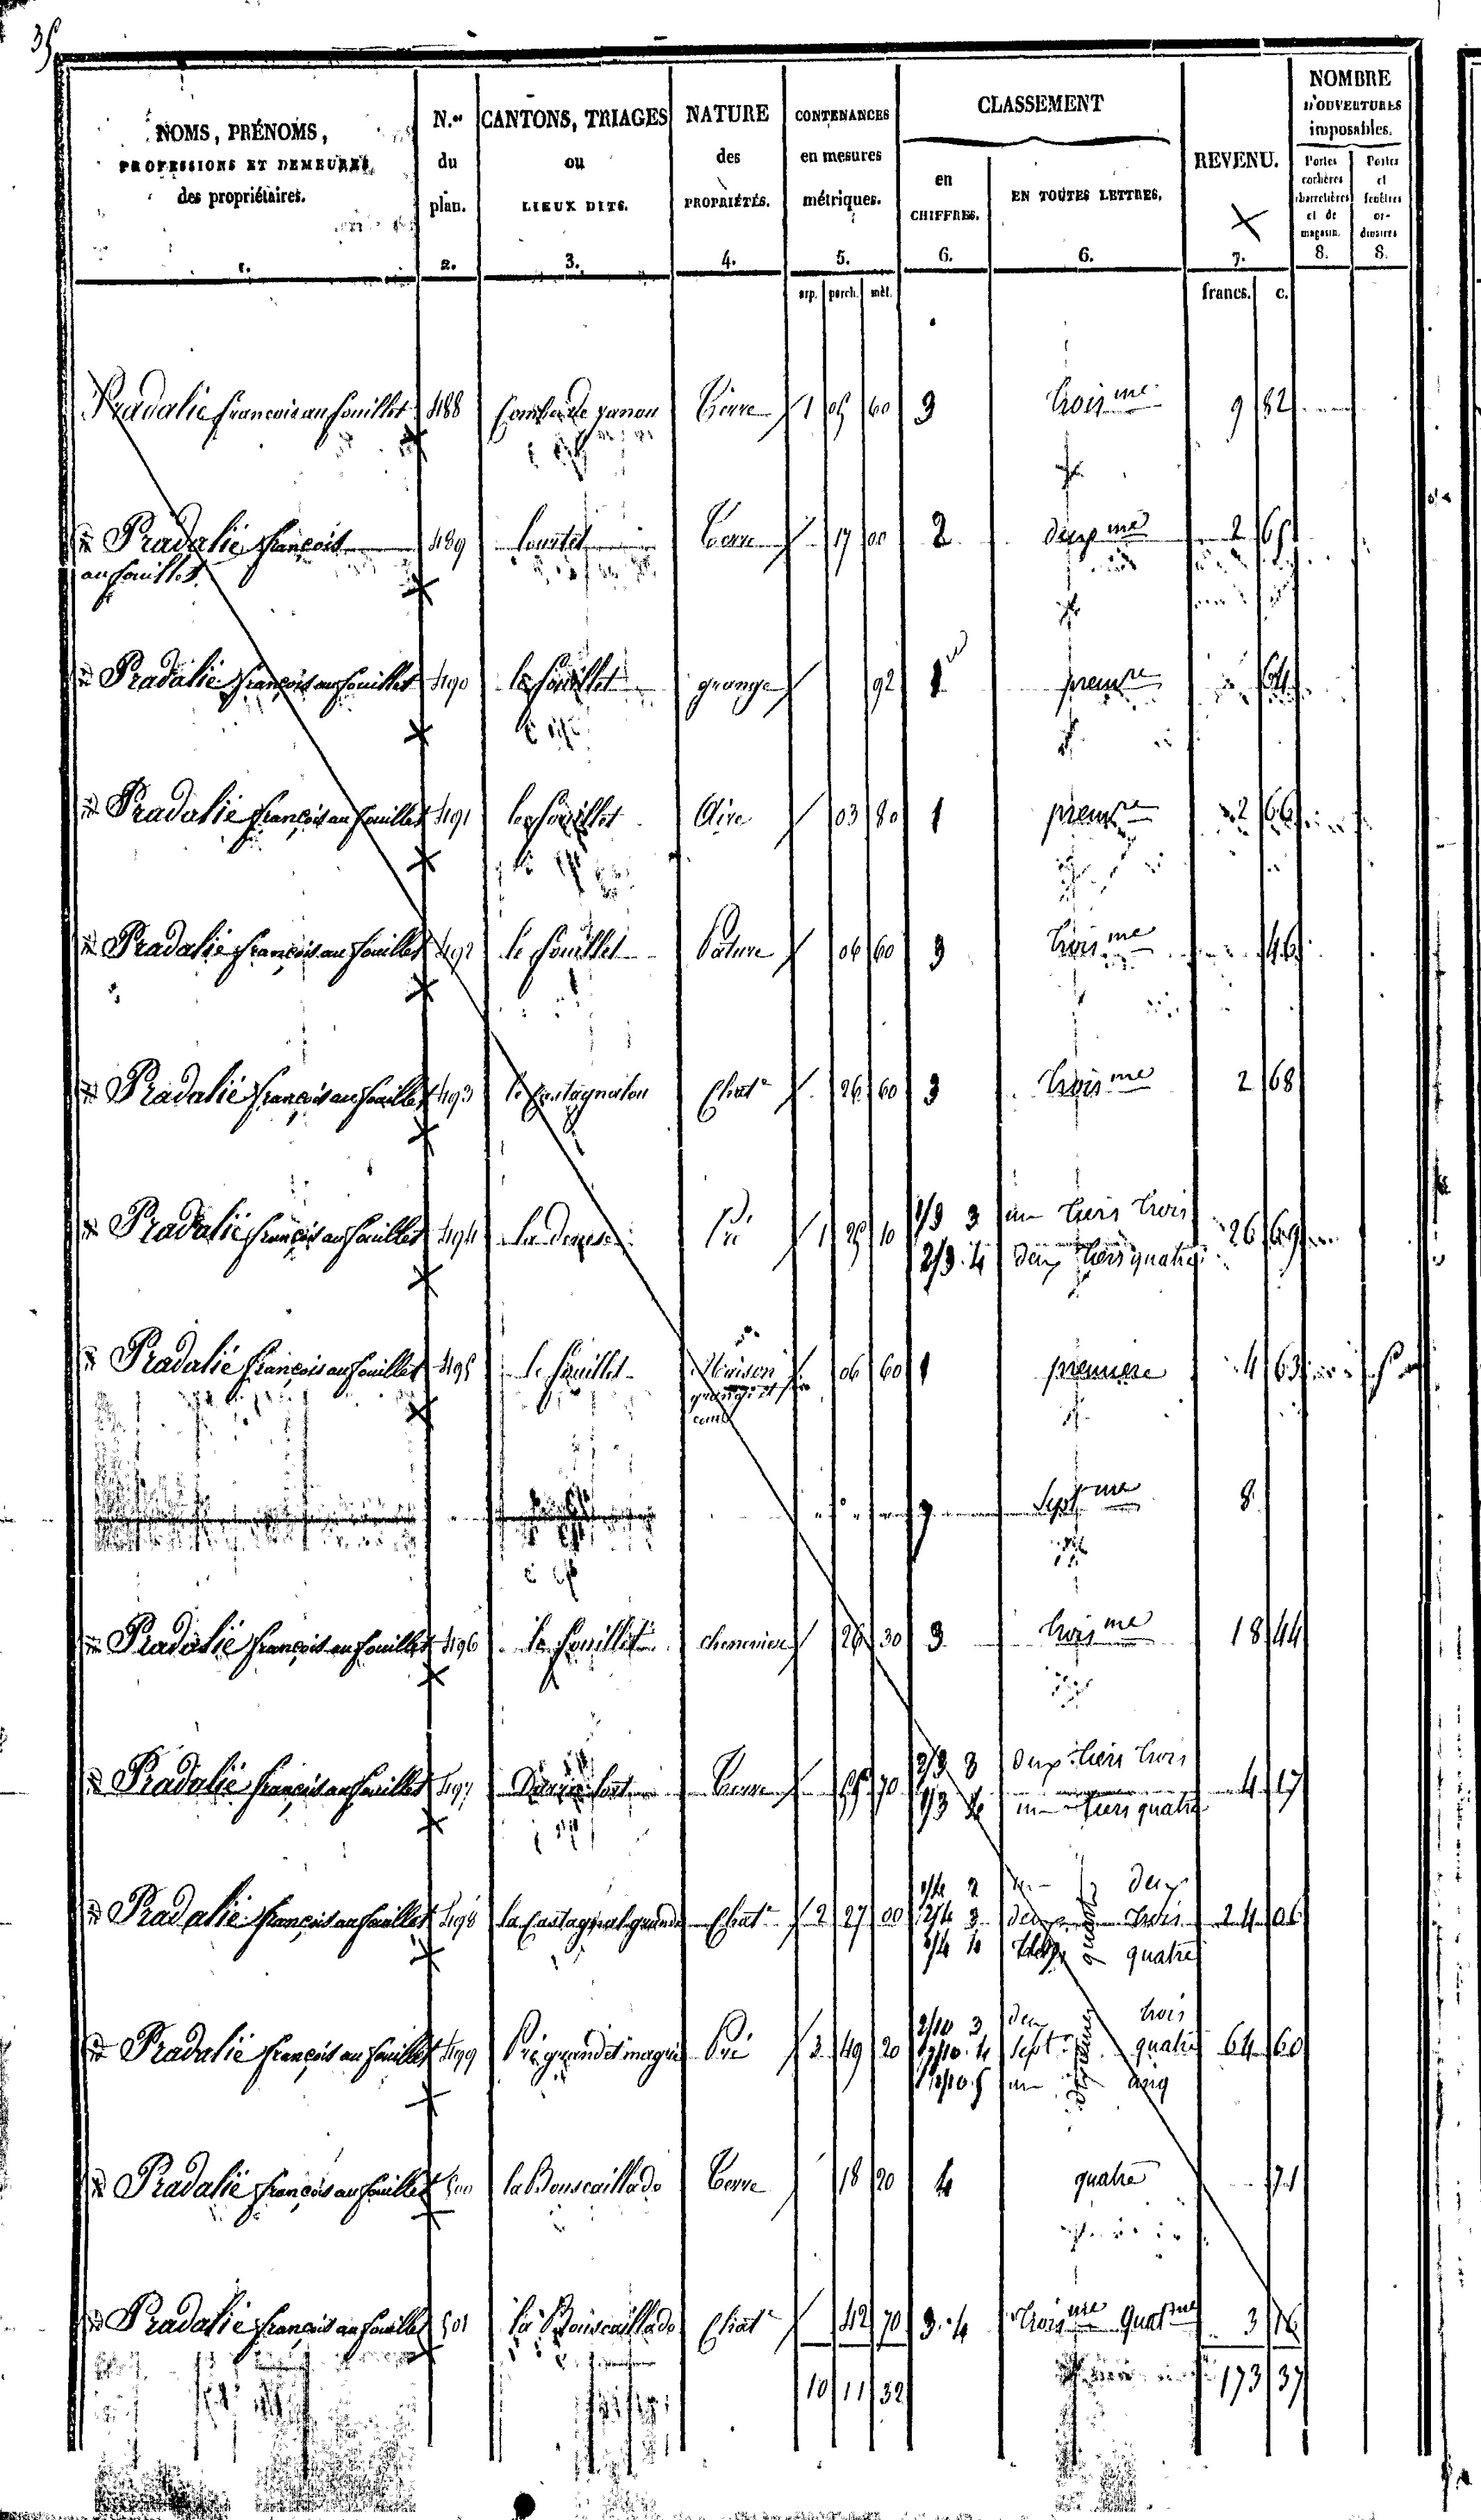 35
NOMS, PRÉNOMS,
PROFESSIONS ET DEMEURES
des propriétaires.
1.
N.os
du
plan.
2.
CANTONS, TRIAGES
ou
LIEUX DITS.
3.
NATURE
des
PROPRIÉTÉS.
4.
CONTENANCES
en mesures
métriques.
5.
arp. perch. mèt.
CLASSEMENT
en
CHIFFRES.
6.
EN TOUTES LETTRES.
6.
REVENU.
7.
francs. c.
NOMBRE
D'OUVERTURES
imposables.
Portes
cochères
charretières
et de
magasin.
8.
Portes
et
fenêtres
or-
dinaires
8.
Pradalié françois au fouillet 488 terre 1 05 60 3 troisme 9 82
Pradalié françois 489 terre 17 00 2 deuxme 2 65
au fouillet
Pradalié françois au fouillet 490 le fouillet grange 92 1 premre 64
Pradalié françois au fouillet 491 le fouillet Aire 03 80 1 premre 2 66
Pradalié françois au fouillet 492 le fouillet Pature 06 60 3 troisme 46
Pradalié françois au fouillet 493 Chatr 26 60 3 troisme 2 68
Pradalié françois au fouillet 494 Pré 1 10 1/3 3 un tiers trois 26 69
2/3 4 deux tiers quatre
Pradalié françois au fouillet 495 le fouillet Maison 06 60 1 premiere 4 63 5
grange et
cour
7 Septme 8
Pradalié françois au fouillet 496 le fouillet cheneviere 26 30 3 troisme 18 44
Pradalié françois au fouillet 497 terre 70 2/3 3 deux tiers trois 4 17
1/3 4 un tiers quatre
Pradalié françois au fouillet 498 la Castagnal grande Chatr 2 27 00 1/4 2 un deux
2/4 3 deux quarts trois 24 06
1/4 4 quatre
Pradalié françois au fouillet 499 Pré grand et magre Pré 3 49 20 2/10 3 deux trois
7/10 4 sept dixiemes quatre 64 60
1/10 5 un cinq
Pradalié françois au fouillet 500 la Bouscaillado terre 18 20 4 quatre 71
Pradalié françois au fouillet 501 la Bouscaillado Chatr 42 70 3. 4 troisme quatme 3 16
10 11 32 173 37